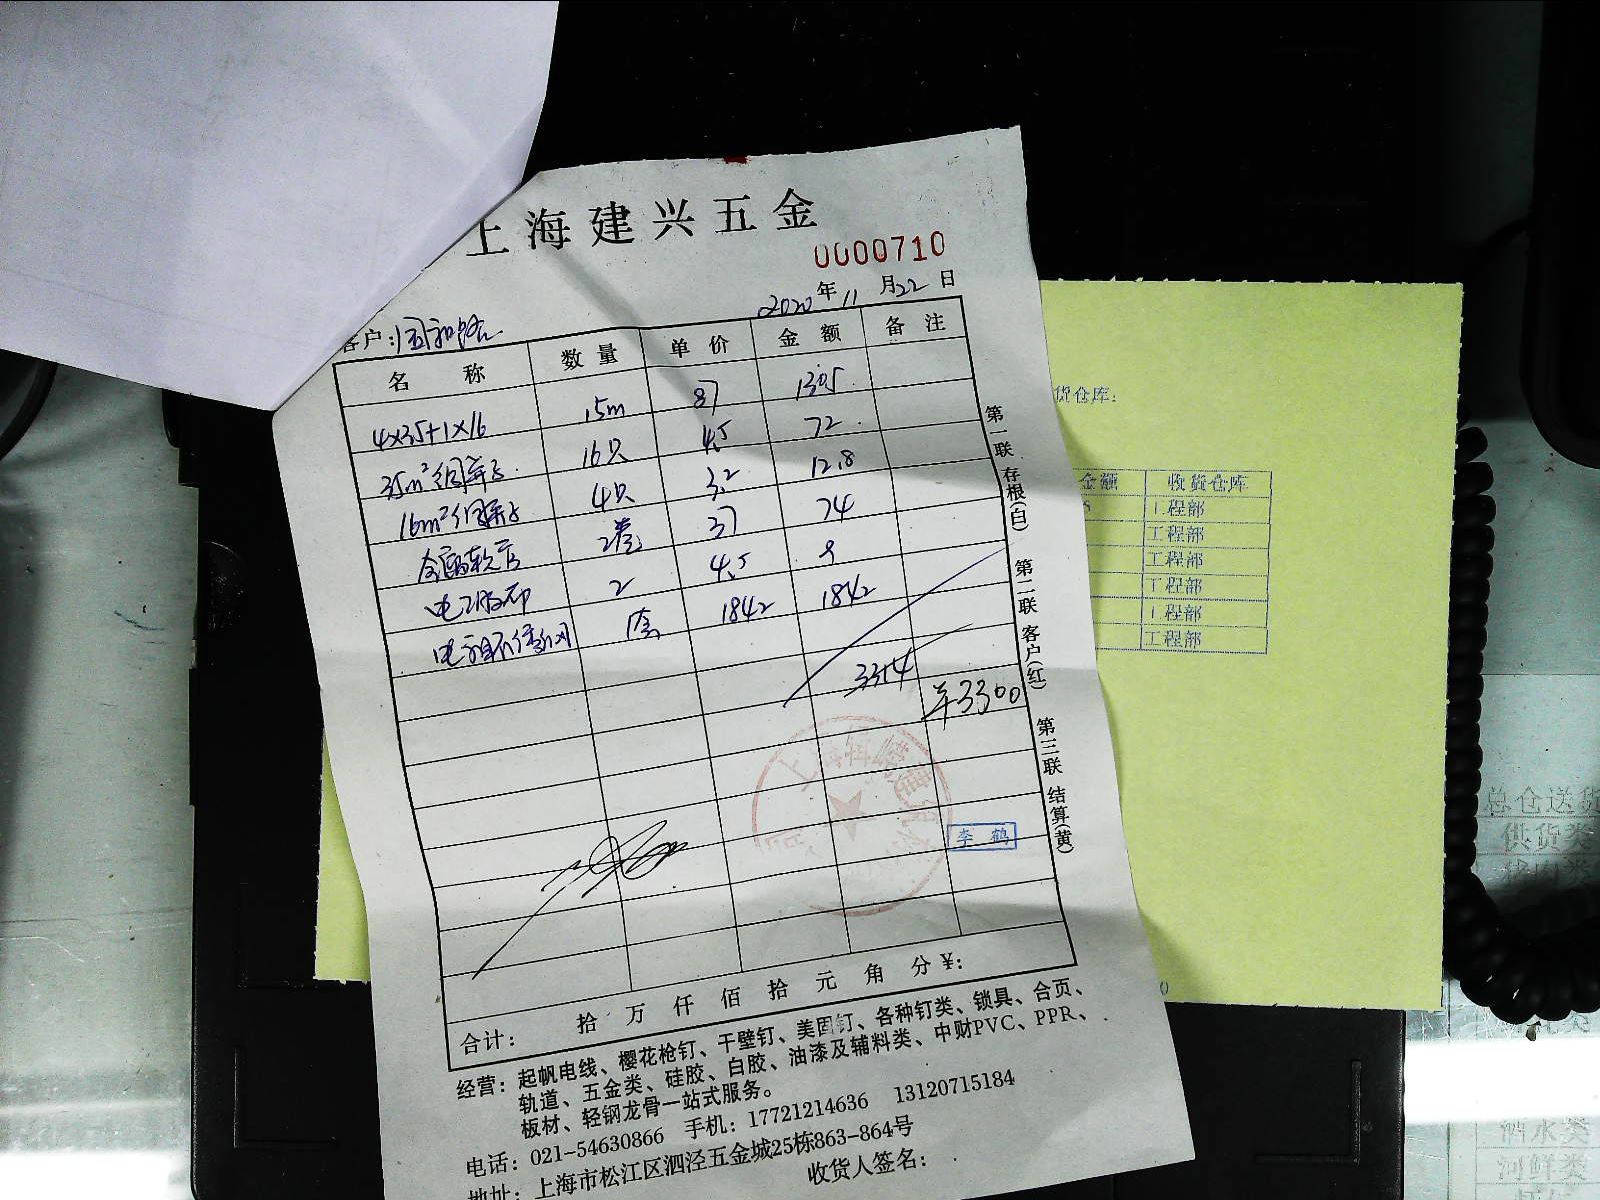 上海建兴五金
0000710
2020年11月22日
客户:
名称 数量 单价 金额 备注
4×35+1×16 15m 87 1305
35m² 16只 4.5 72
16m² 4只 3.2 12.8
金属软管 2卷 37 74
电工胶布 2 4.5 9
1套 1842 1842
3314
¥3300
李鹤
合计: 拾 万 仟 佰 拾 元 角 分 ¥:
经营: 起帆电线、樱花枪钉、干壁钉、美固钉、各种钉类、锁具、合页、
轨道、五金类、硅胶、白胶、油漆及辅料类、中财PVC、PPR、
板材、轻钢龙骨一站式服务。
电话: 021-54630866 手机: 17721214636 13120715184
地址: 上海市松江区泗泾五金城25栋863-864号
收货人签名:
第一联 存根(白) 第二联 客户(红) 第三联 结算(黄)
货仓库:
金额 收货仓库
工程部
工程部
工程部
工程部
工程部
工程部
总仓送货
供货类
酒水类
河鲜类